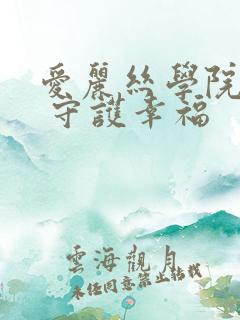 愛麗絲學院
守護幸福
雲海觀月
未經同意禁止轉載